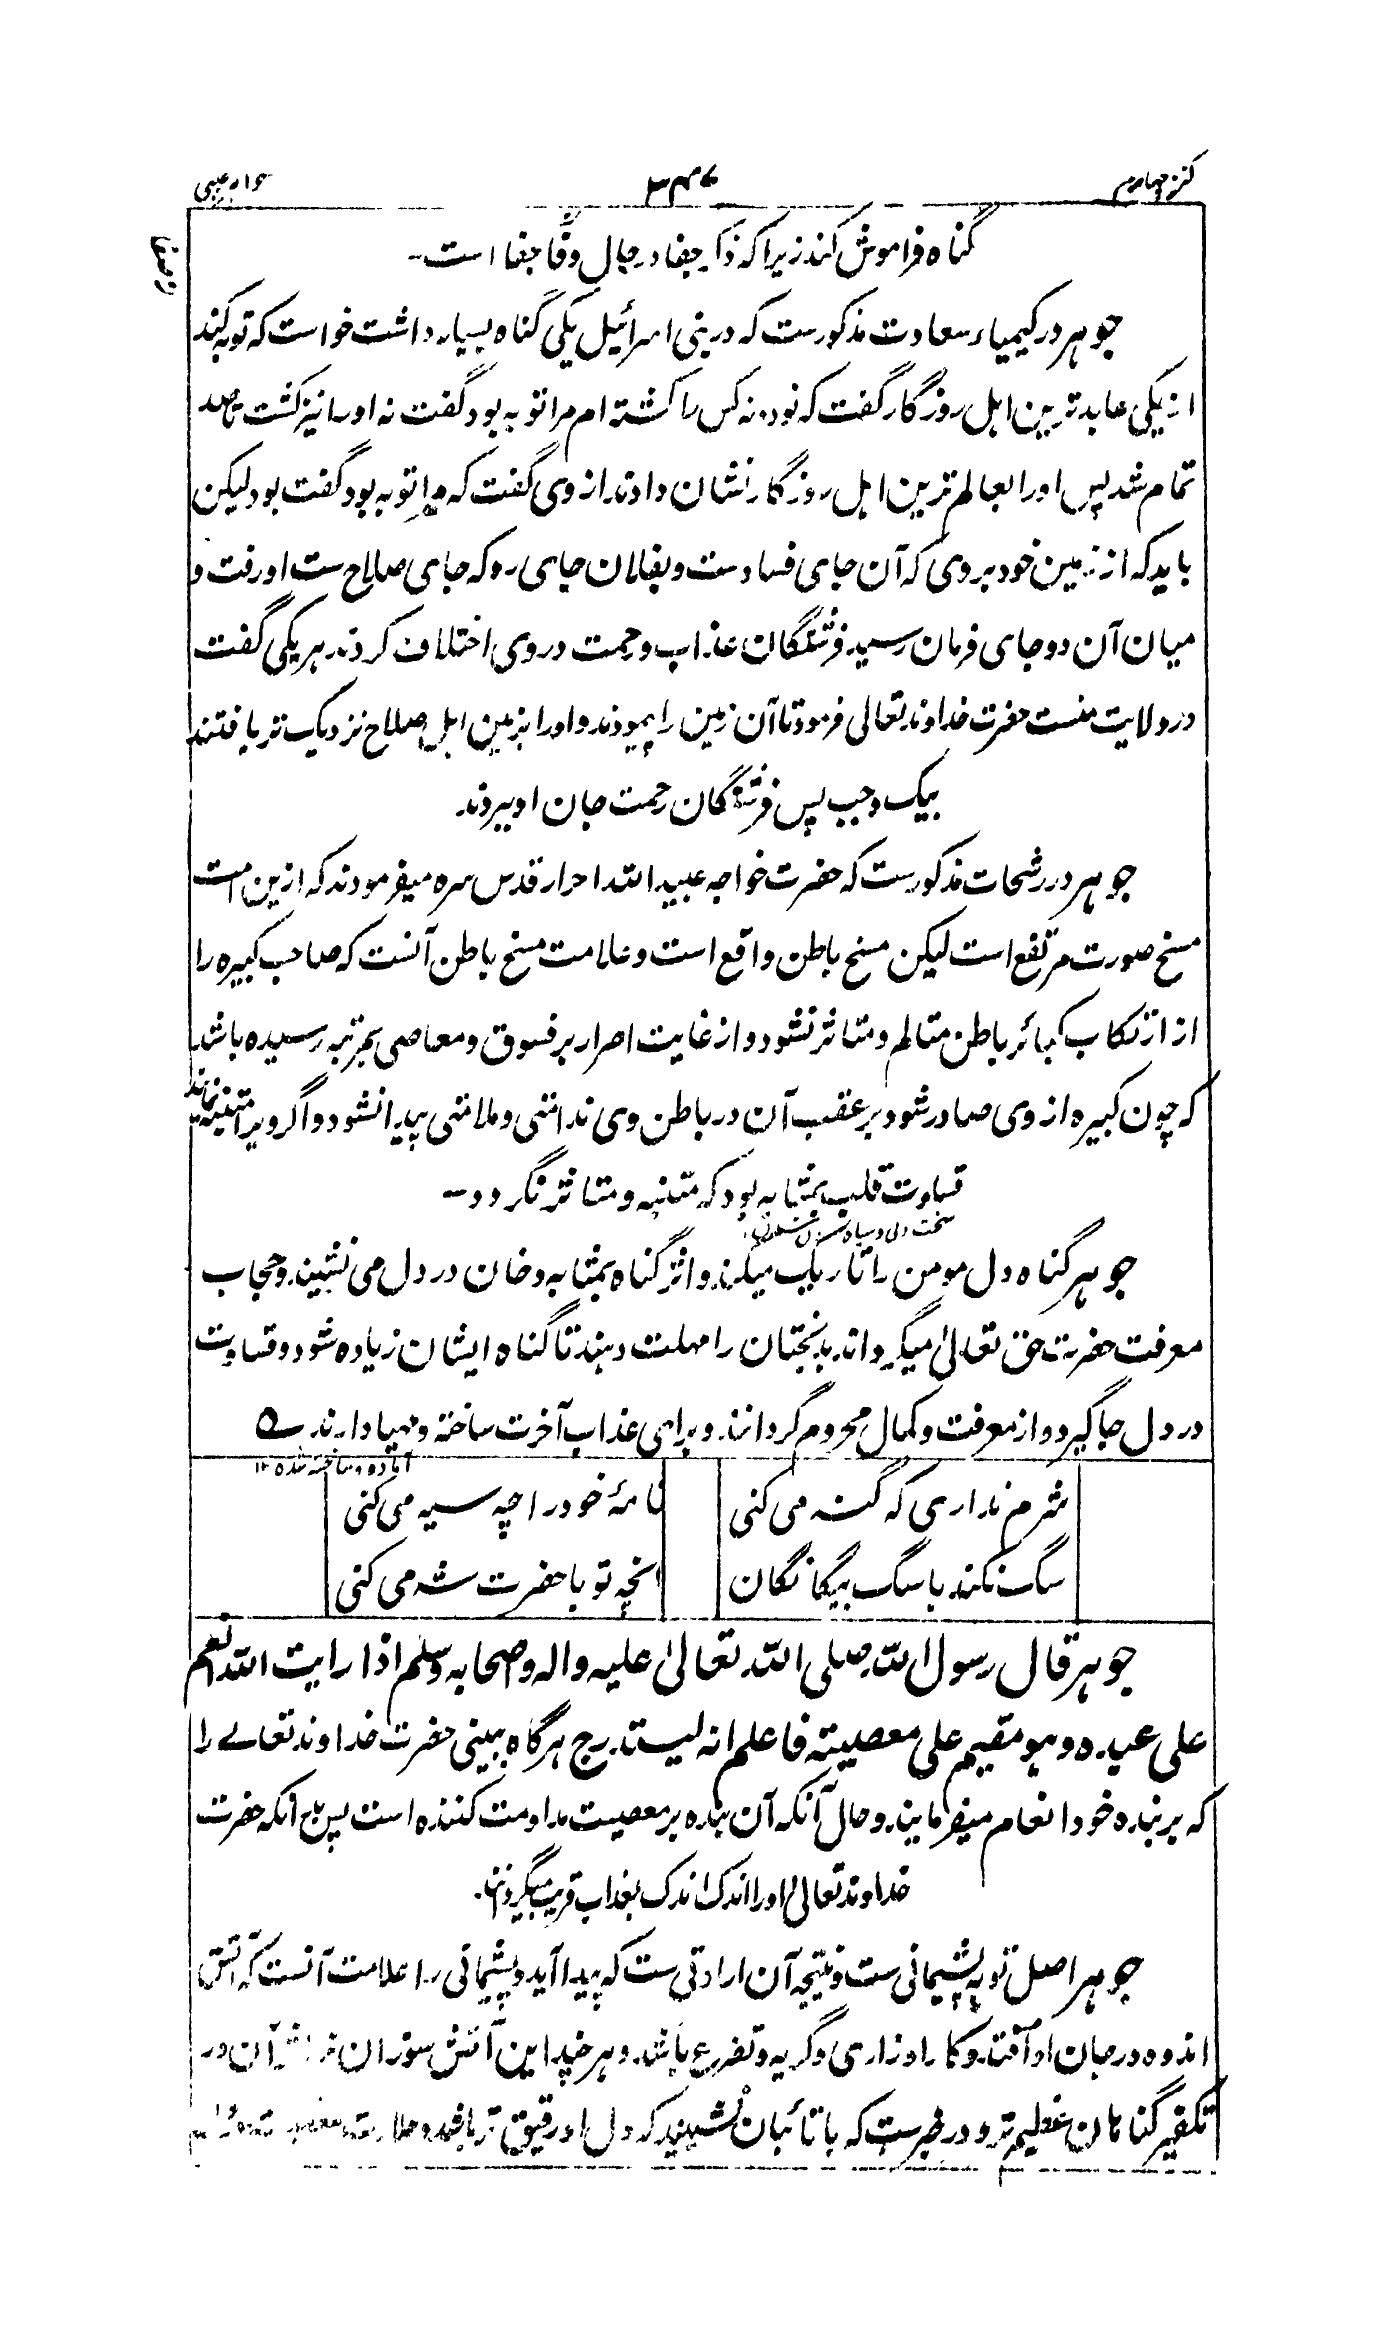 کنز چهارم
جواهر غیبی
گناه فراموش کند زیرا که ذکر جفا در حال وفا جفا است ـ
جوهر در کیمیاء سعادت مذکورست که در بنی اسرائیل یکی گناه بسیار داشت خواست که توبه کند
از یکی عابد ترین اهل روزگار گفت که نود و نه کس را کشته ام مرا توبه بود گفت نه او را نیز کشت تا صد
تمام شد پس او را بعالم ترین اهل روزگار نشان دادند از وی گفت که مرا توبه بود گفت بود لیکن
باید که از زمین خود بروی که آن جای فسادست و بفلان جای رو که جای صلاح ست او رفت و
میان آن دو جای فرمان رسید فرشتگان عذاب و رحمت در وی اختلاف کردند هر یکی گفت
در ولایت منست حضرت خداوند تعالی فرمود تا آن زمین را پیمودند و او را بزمین اهل صلاح نزدیک تر یافتند
بیک وجب پس فرشتگان رحمت جان او ببردند
جوهر در رشحات مذکورست که حضرت خواجه عبید الله احرار قدس سره میفرمودند که ازین امت
مسخ صورت مرتفع است لیکن مسخ باطن واقع است و علامت مسخ باطن آنست که صاحب کبیره را
از ارتکاب کبائر باطن متالم و متاثر نشود و از غایت اصرار بر فسوق و معاصی بمرتبه رسیده باشد
که چون کبیره از وی صادر شود بر عقب آن در باطن وی ندامتی و ملامتی پیدا نشود و اگر ویرا متنبه نمایند
قساوت قلب بمثابه بود که متنبه و متاثر نگردد ـ
سخت دلی و سیاه
جوهر گناه دل مومن را تاریک میکند و اثر گناه بمثابه دخان در دل می نشیند و حجاب
معرفت حضرت حق تعالیٰ میگرداند بدبختان را مهلت دهند تا گناه ایشان زیاده شود و قساوت
در دل جاگیرد و از معرفت و کمال محروم گردانند و برای عذاب آخرت ساخته و مهیا دارند ـه
آماده و ساخته شده ۱۲
شرم نداری که گنه می کنی
نامهٔ خود را چه سیه می کنی
سگ نکند با سگ بیگانگان
انچه تو با حضرت شه می کنی
جوهر قال رسول الله صلی الله تعالیٰ علیه واله واصحابه وسلم اذا رایت الله انعم
علی عبده وهو مقیم علی معصیته فاعلم انه لیستدرج هرگاه ببینی حضرت خداوند تعالے را
که بر بنده خود انعام میفرماید و حال آنکه آن بنده بر معصیت مداومت کننده است پس بدانکه حضرت
خداوند تعالیٰ او را اندک اندک بعذاب قریب میگرداند
جوهر اصل توبه پشیمانی ست و نتیجه آن ارادتی ست که پیدا آید و پشیمانی را علامت آنست که آتش
اندوه در جان او افتد و کار او زاری و گریه و تضرع باشد و هر چند این آتش سوزان آن در
تکفیر گناهان عظیم تر و در خبرست که با تائبان نشینید که دل او رقیق تر باشد و